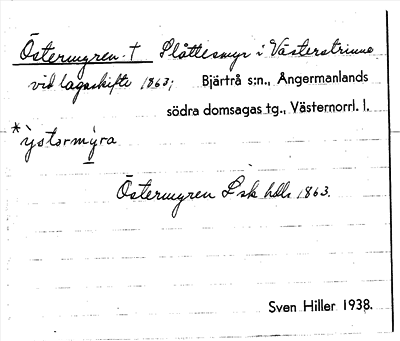 Östermyren. † Slåttesmyr i Västerstrinne
vid lagaskifte 1863; Bjärtrå s:n., Ångermanlands
södra domsagas tg., Västernorrl. l.
*ỳstərmỳra
Östermyren Lsk hdl. 1863.
Sven Hiller 1938.